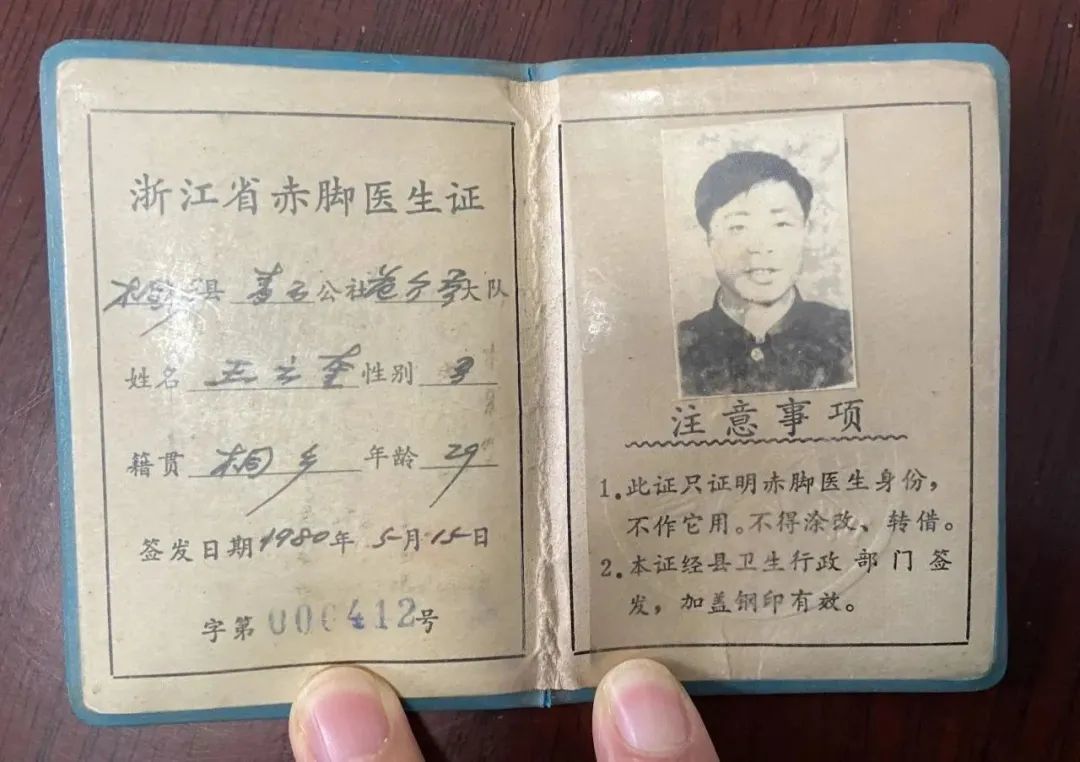 浙江省赤脚医生证
桐乡县 青云公社 大队
姓名 王云奎 性别 男
籍贯 桐乡 年龄 29
签发日期1980年 5月15日
字第000412号
注意事项
1.此证只证明赤脚医生身份，
不作它用。不得涂改、转借。
2.本证经县卫生行政部门签
发，加盖钢印有效。